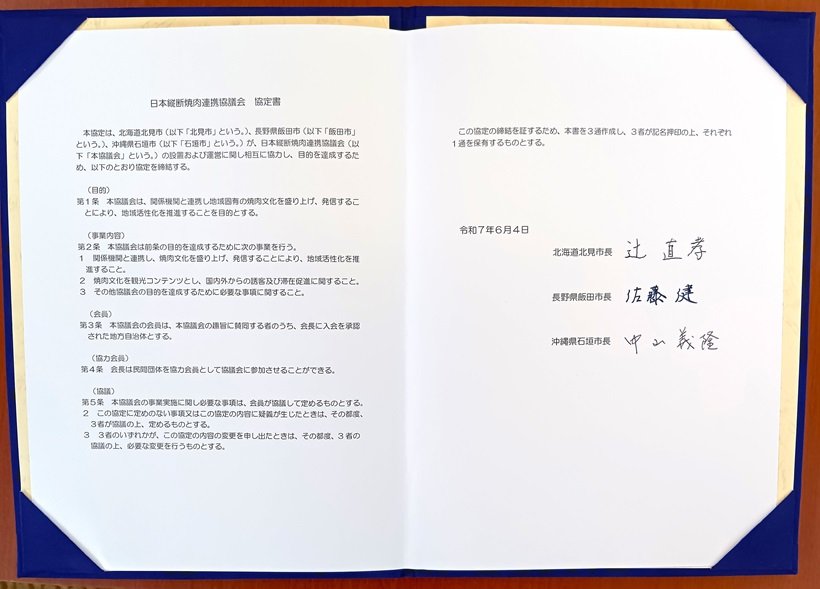 日本縦断焼肉連携協議会　協定書
本協定は、北海道北見市（以下「北見市」という。）、長野県飯田市（以下「飯田市」
という。）、沖縄県石垣市（以下「石垣市」という。）が、日本縦断焼肉連携協議会（以
下「本協議会」という。）の設置および運営に関し相互に協力し、目的を達成するた
め、以下のとおり協定を締結する。
（目的）
第１条　本協議会は、関係機関と連携し地域固有の焼肉文化を盛り上げ、発信するこ
とにより、地域活性化を推進することを目的とする。
（事業内容）
第２条　本協議会は前条の目的を達成するために次の事業を行う。
１　関係機関と連携し、焼肉文化を盛り上げ、発信することにより、地域活性化を推
進すること。
２　焼肉文化を観光コンテンツとし、国内外からの誘客及び滞在促進に関すること。
３　その他協議会の目的を達成するために必要な事項に関すること。
（会員）
第３条　本協議会の会員は、本協議会の趣旨に賛同する者のうち、会長に入会を承認
された地方自治体とする。
（協力会員）
第４条　会長は民間団体を協力会員として協議会に参加させることができる。
（協議）
第５条　本協議会の事業実施に関し必要な事項は、会員が協議して定めるものとする。
２　この協定に定めのない事項又はこの協定の内容に疑義が生じたときは、その都度、
３者が協議の上、定めるものとする。
３　３者のいずれかが、この協定の内容の変更を申し出たときは、その都度、３者の
協議の上、必要な変更を行うものとする。
この協定の締結を証するため、本書を３通作成し、３者が記名押印の上、それぞれ
１通を保有するものとする。
令和７年６月４日
北海道北見市長　辻　直孝
長野県飯田市長　佐藤　健
沖縄県石垣市長　中山　義隆